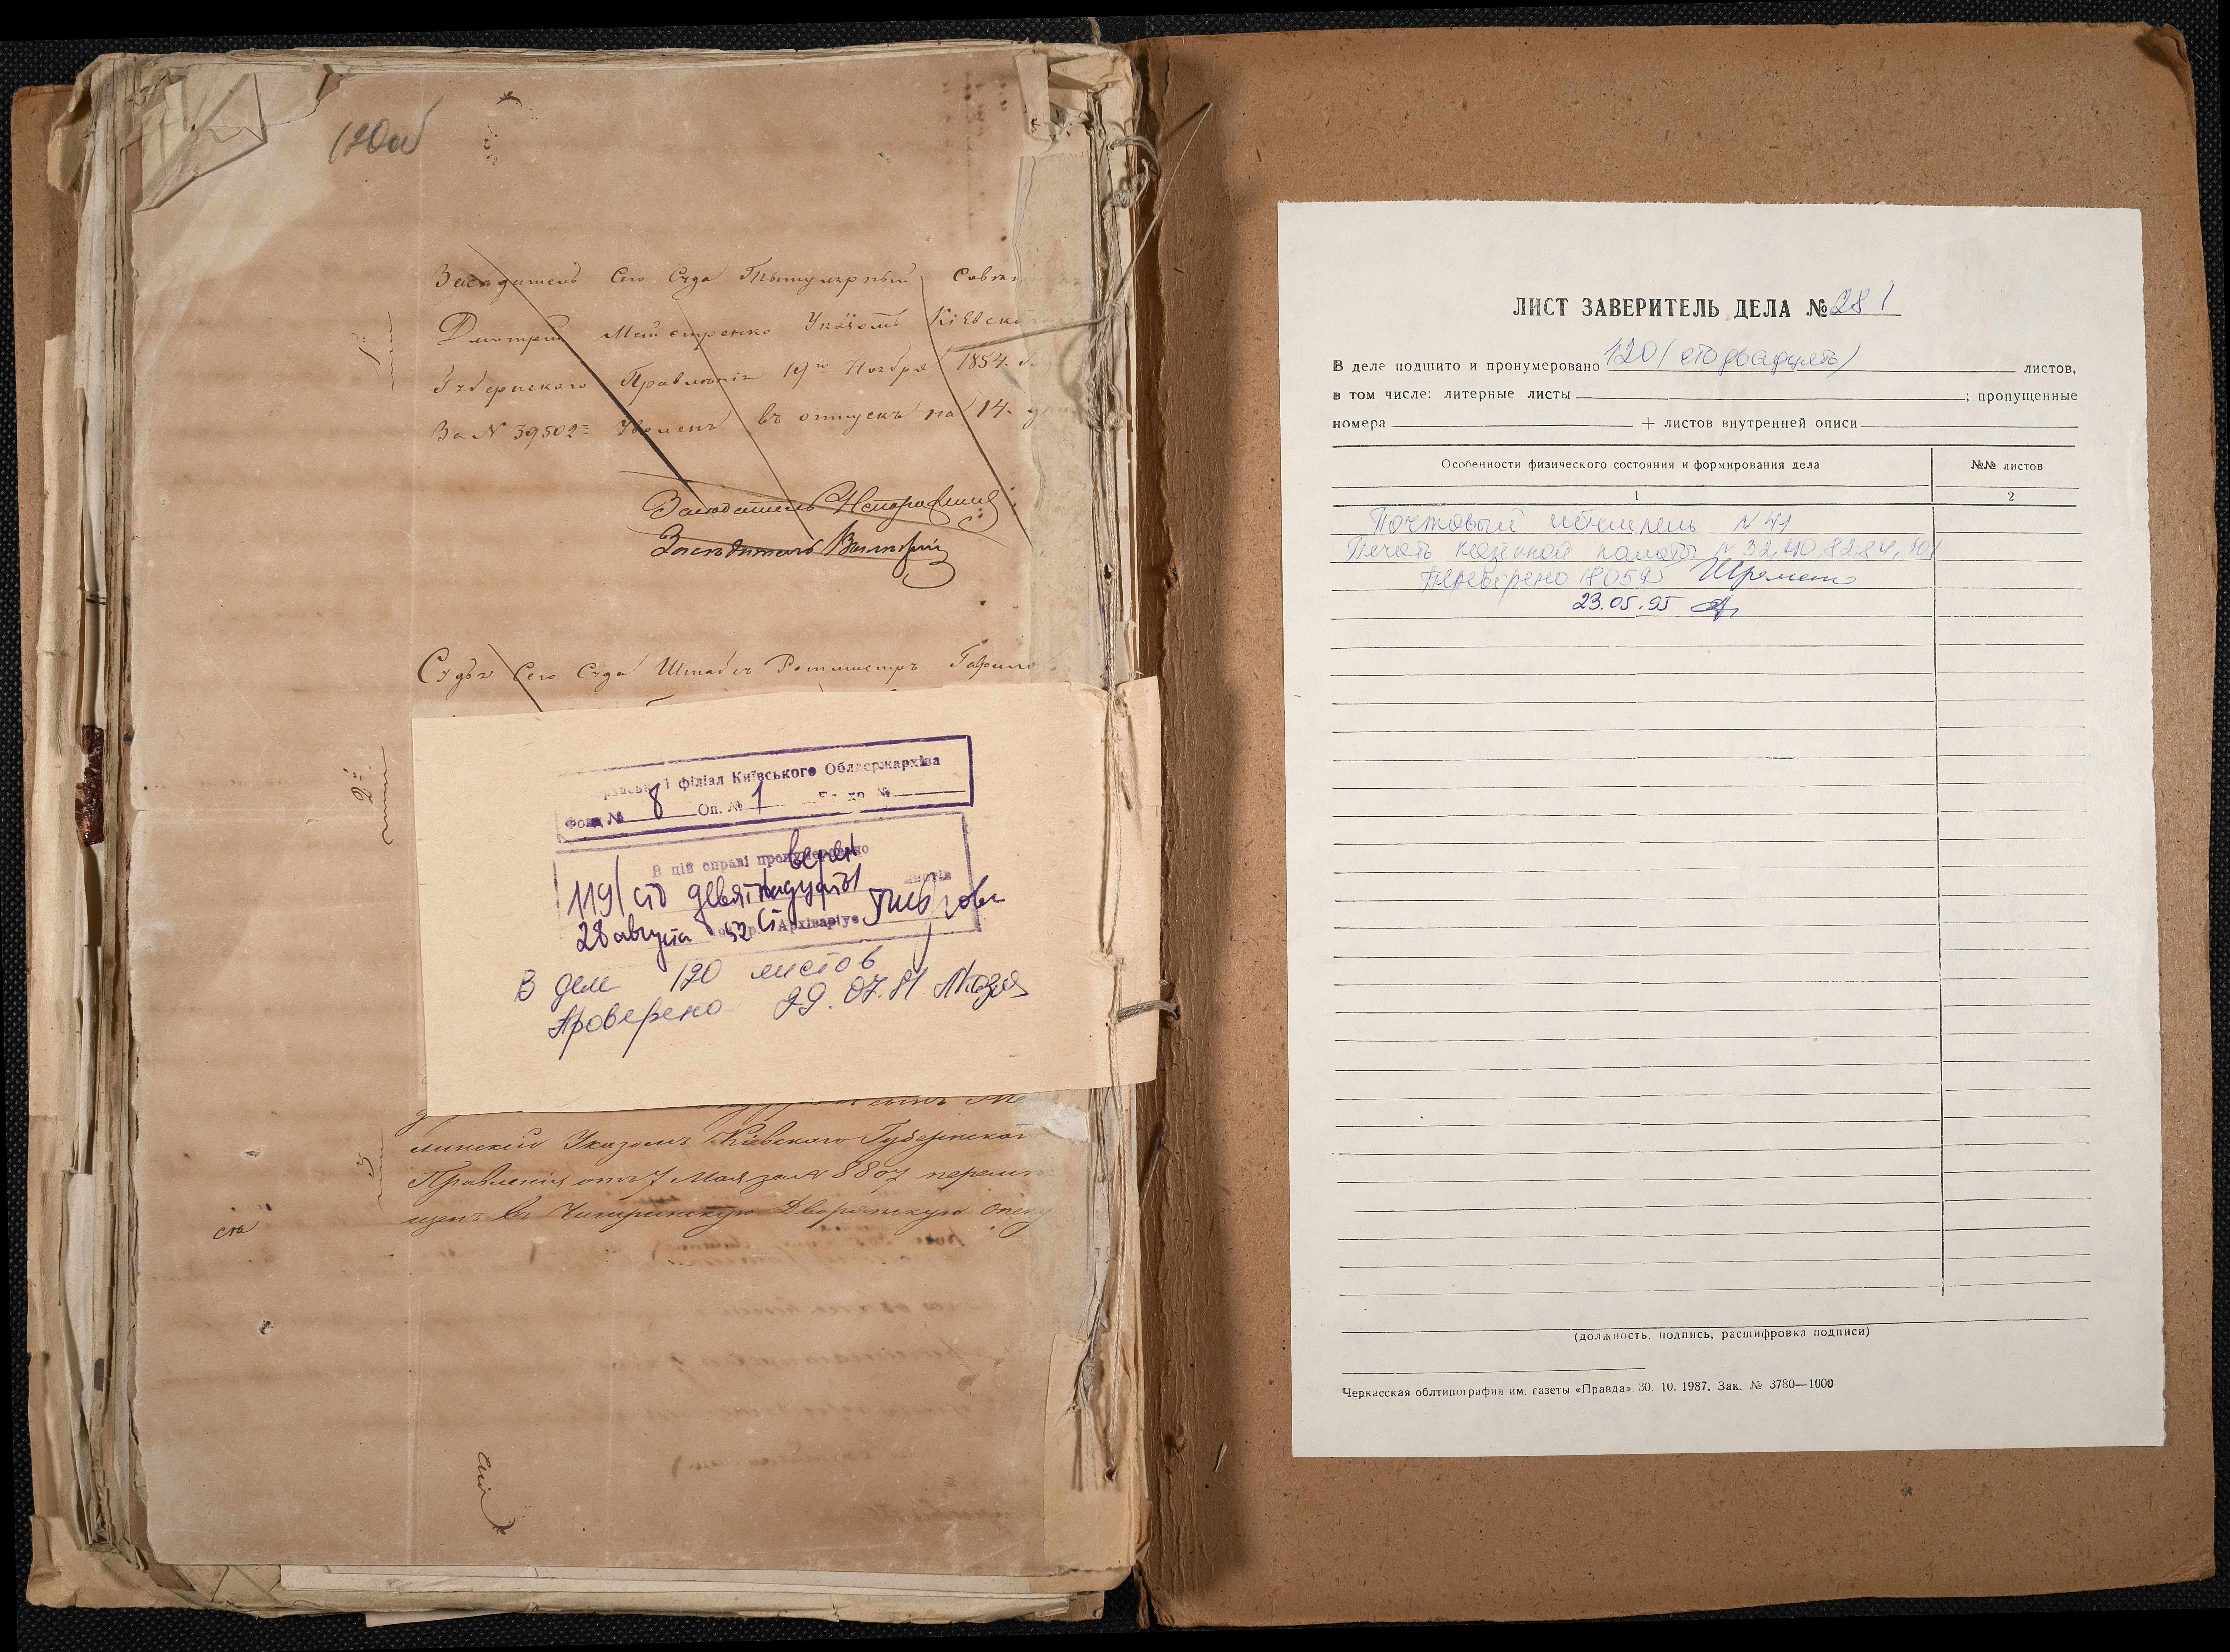 120об
1е
Заседатель Сего Суда Титулярный Совет
Дмитрий Майстренко Указомъ Кіевска
Губернскаго Правленія 19го Ноября 1854.
За N 39502= Уволенъ въ отпускъ на 14.
Заседатель
Заседатель
Судья Сего Суда Штабсъ Ротмистръ Гаврило
2е
філіал Київського Облдержархіва
Фонд № 8 Оп. № 1
В цій справі пронумеровано
119 (сто девятнадцать)
листів
28 августа 52 р. Архіваріус
В деле 120 листов
Проверено 29.07.81
3
линскій Указомъ Кіевскаго Губернскаго
Правленія отъ 7 Мая за N 8807 перемѣ
щенъ въ Чигиринскую Дворянскую Опеку
ста
ЛИСТ ЗАВЕРИТЕЛЬ ДЕЛА № 281
В деле подшито и пронумеровано 120 (сто двадцать) листов,
в том числе: литерные листы ; пропущенные
номера + листов внутренней описи
Особенности физического состояния и формирования дела №№ листов
1 2
Почтовый штемпель N 41
Печать казенной палаты N 32, 40, 82, 84, 101
Проверено 180595
23.05.95
(должность, подпись, расшифровка подписи)
Черкасская облтипография им. газеты «Правда». 30. 10. 1987. Зак. № 3780—1000